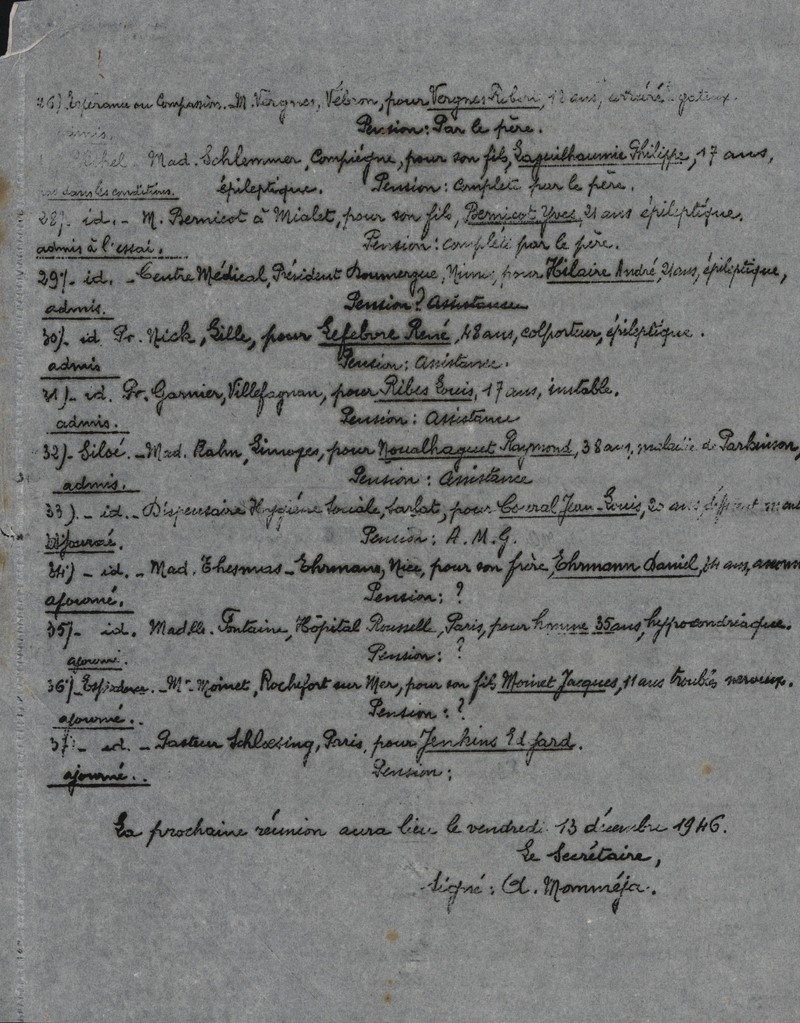 26/ Espérance ou Compassion. - M. Vergnes, Vébron, pour Vergnes Robert, 12 ans, arriéré, gâteux.
admis. Pension: Par le père.
Mad. Schlemmer, Compiègne, pour son fils, Laguilhaumie Philippe, 17 ans,
pas dans les conditions. épileptique. Pension: complété par le père.
28/- id. - M. Bernicot à Mialet, pour son fils, Bernicot Yves, 21 ans épileptique.
admis à l'essai. Pension: complété par le père.
29/- id. - Centre Médical, Président Doumergue, Nimes, pour Hilaire André, 21 ans, épileptique,
admis. Pension? Assistance
30/- id Pr. Nick, Lille, pour Lefebvre René, 48 ans, colporteur, épileptique.
admis Pension: Assistance.
31/- id. Pr. Garnier, Villefagnan, pour Ribes Louis, 17 ans, instable.
admis. Pension: Assistance
32/- Siloé. - Mad. Kahn, Limoges, pour Noualhaguet Raymond, 38 ans, maladie de Parkinson,
admis. Pension: Assistance
33). - id. - Dispensaire Hygiène Sociale, Sarlat, pour Jean-Louis, 20 ans
ajourné. Pension: A.M.G.
34/- id. - Mad. Ehrmann, Nice, pour son frère, Ehrmann Daniel, 34 ans,
ajourné. Pension: ?
35/- id. Madlle. Fontaine, Hôpital Rousselle, Paris, pour homme 35 ans, hyppocondriaque.
ajourné. Pension: ?
36/- Espérance. - Mr Moinet, Rochefort sur Mer, pour son fils Moinet Jacques, 11 ans troubles nerveux.
ajourné. Pension: ?
37/- id. - Pasteur Schloesing, Paris, pour Jenkins
ajourné. Pension:
La prochaine réunion aura lieu le vendredi 13 décembre 1946.
Le Secrétaire,
Signé: A. Momméja.